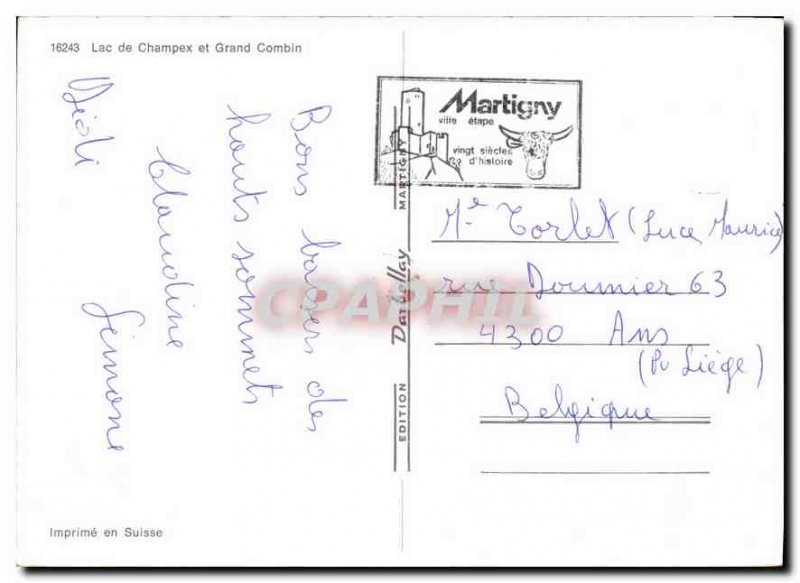 16243 Lac de Champex et Grand Combin
Bons baisers des
hauts sommets
Claudine
Didi Simone
Imprimé en Suisse
EDITION Darbellay MARTIGNY
Martigny
ville étape
vingt siècles
d'histoire
Me Torlet (Luce Maurice)
rue Doumier 63
4300 Ans
(Pr Liége)
Belgique
CPAPHIL